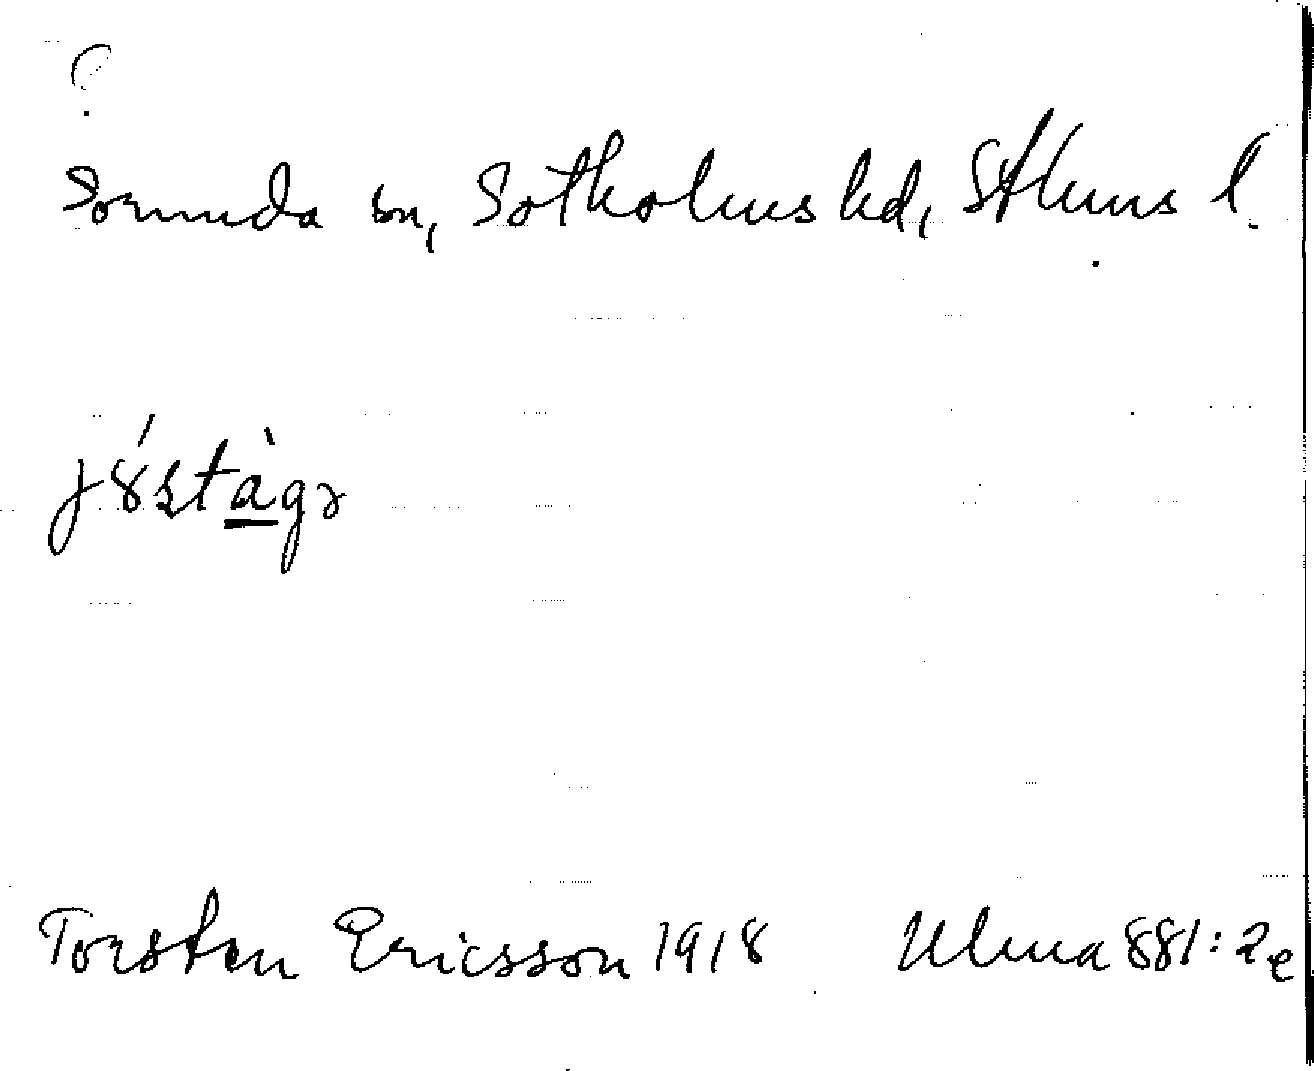 ?
Sorunda sn, Sotholms hd, Sthlms l.
Torsten Ericsson 1918 Ulma 881:2e